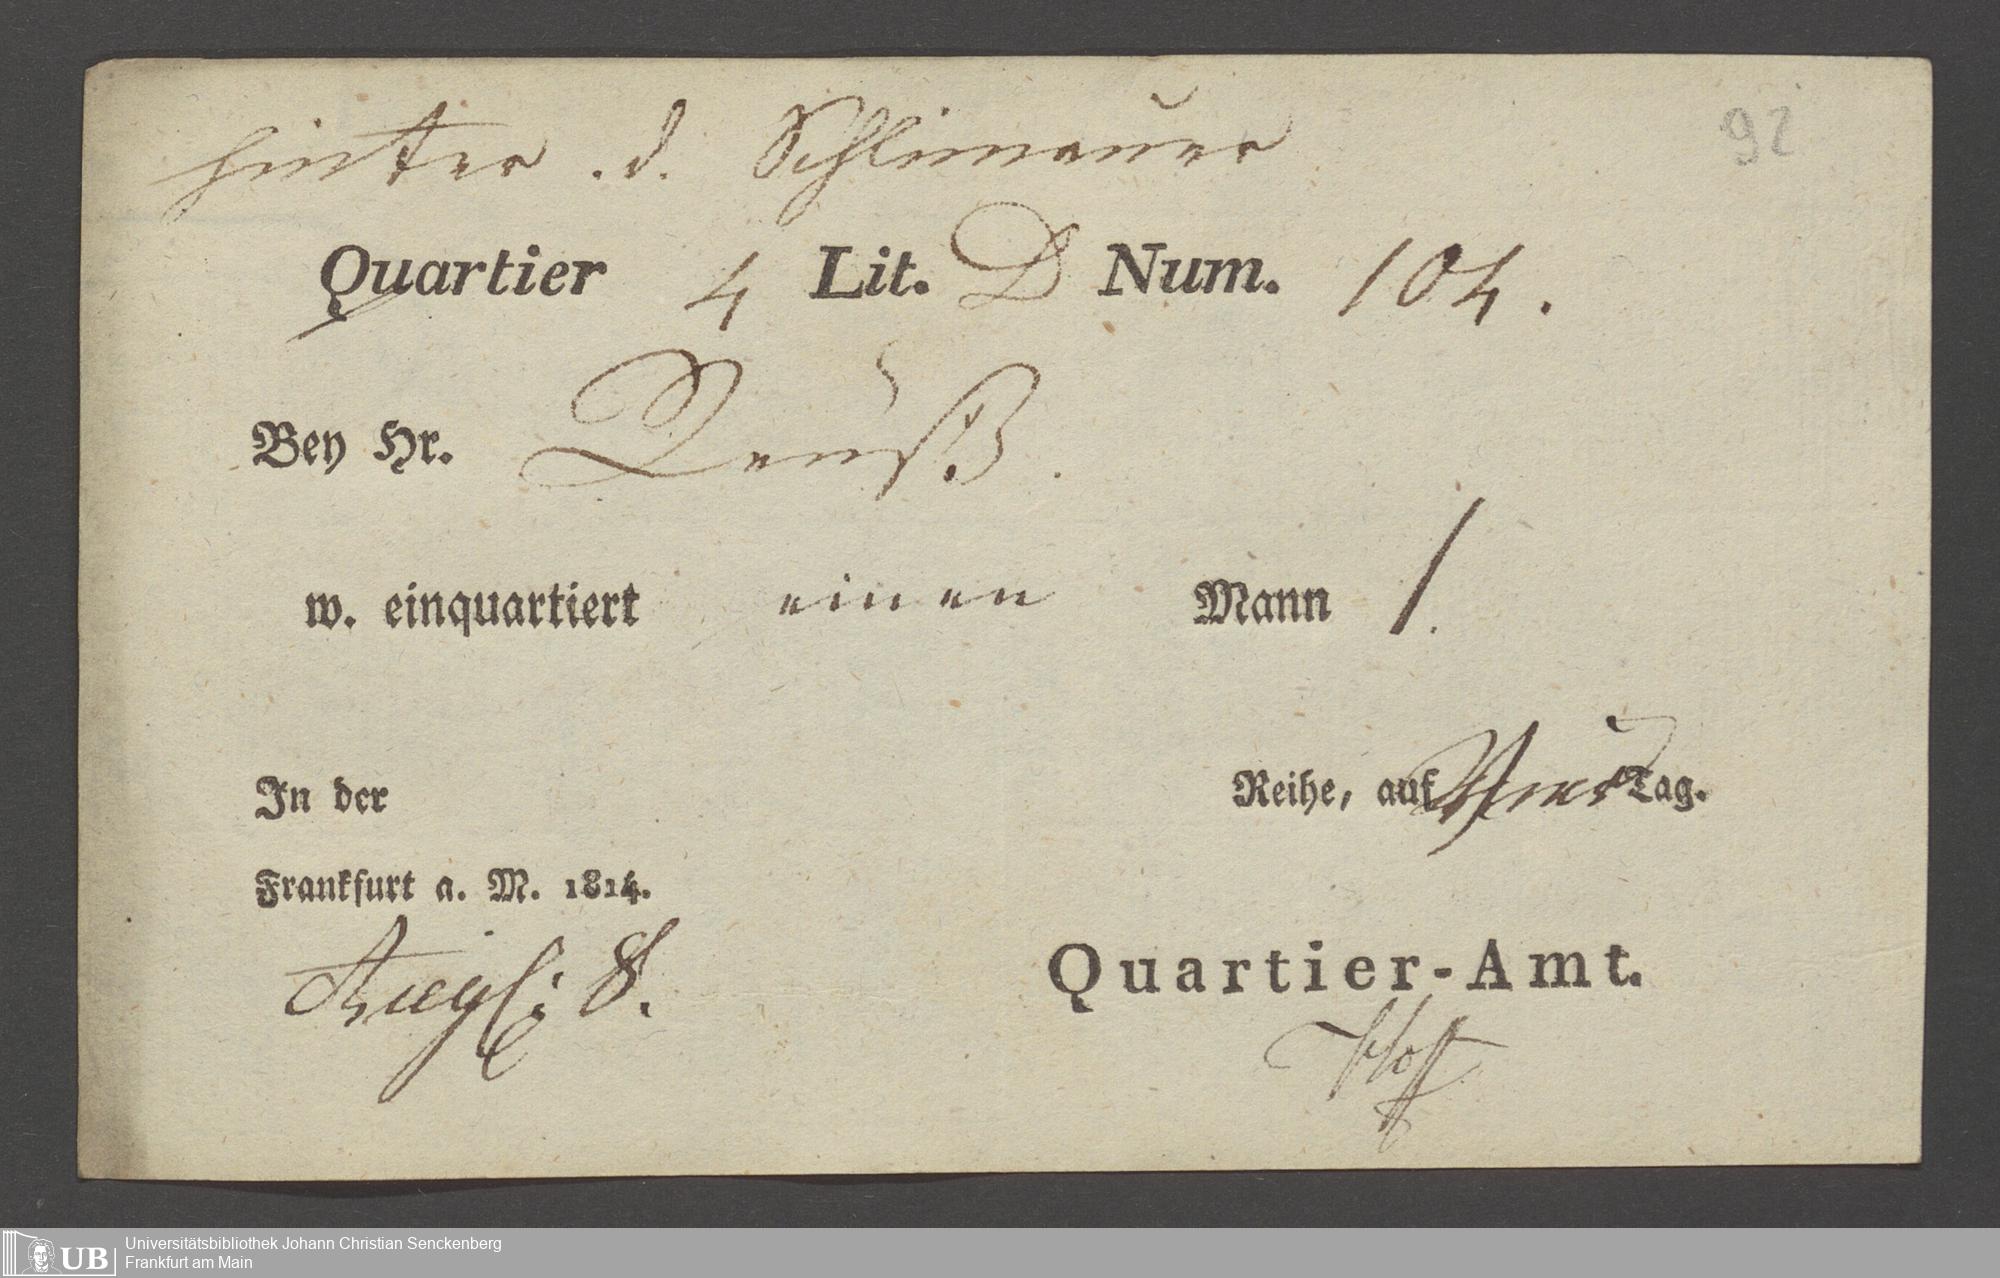 hinter d. Schlimauer
92
Quartier 4 Lit. D Num. 104.
Bey Hr. Deuß.
w. einquartiert einen Mann 1.
In der Reihe, auf Tag.
Frankfurt a. M. 1814.
8.
Quartier-Amt.
UB Universitätsbibliothek Johann Christian Senckenberg
Frankfurt am Main